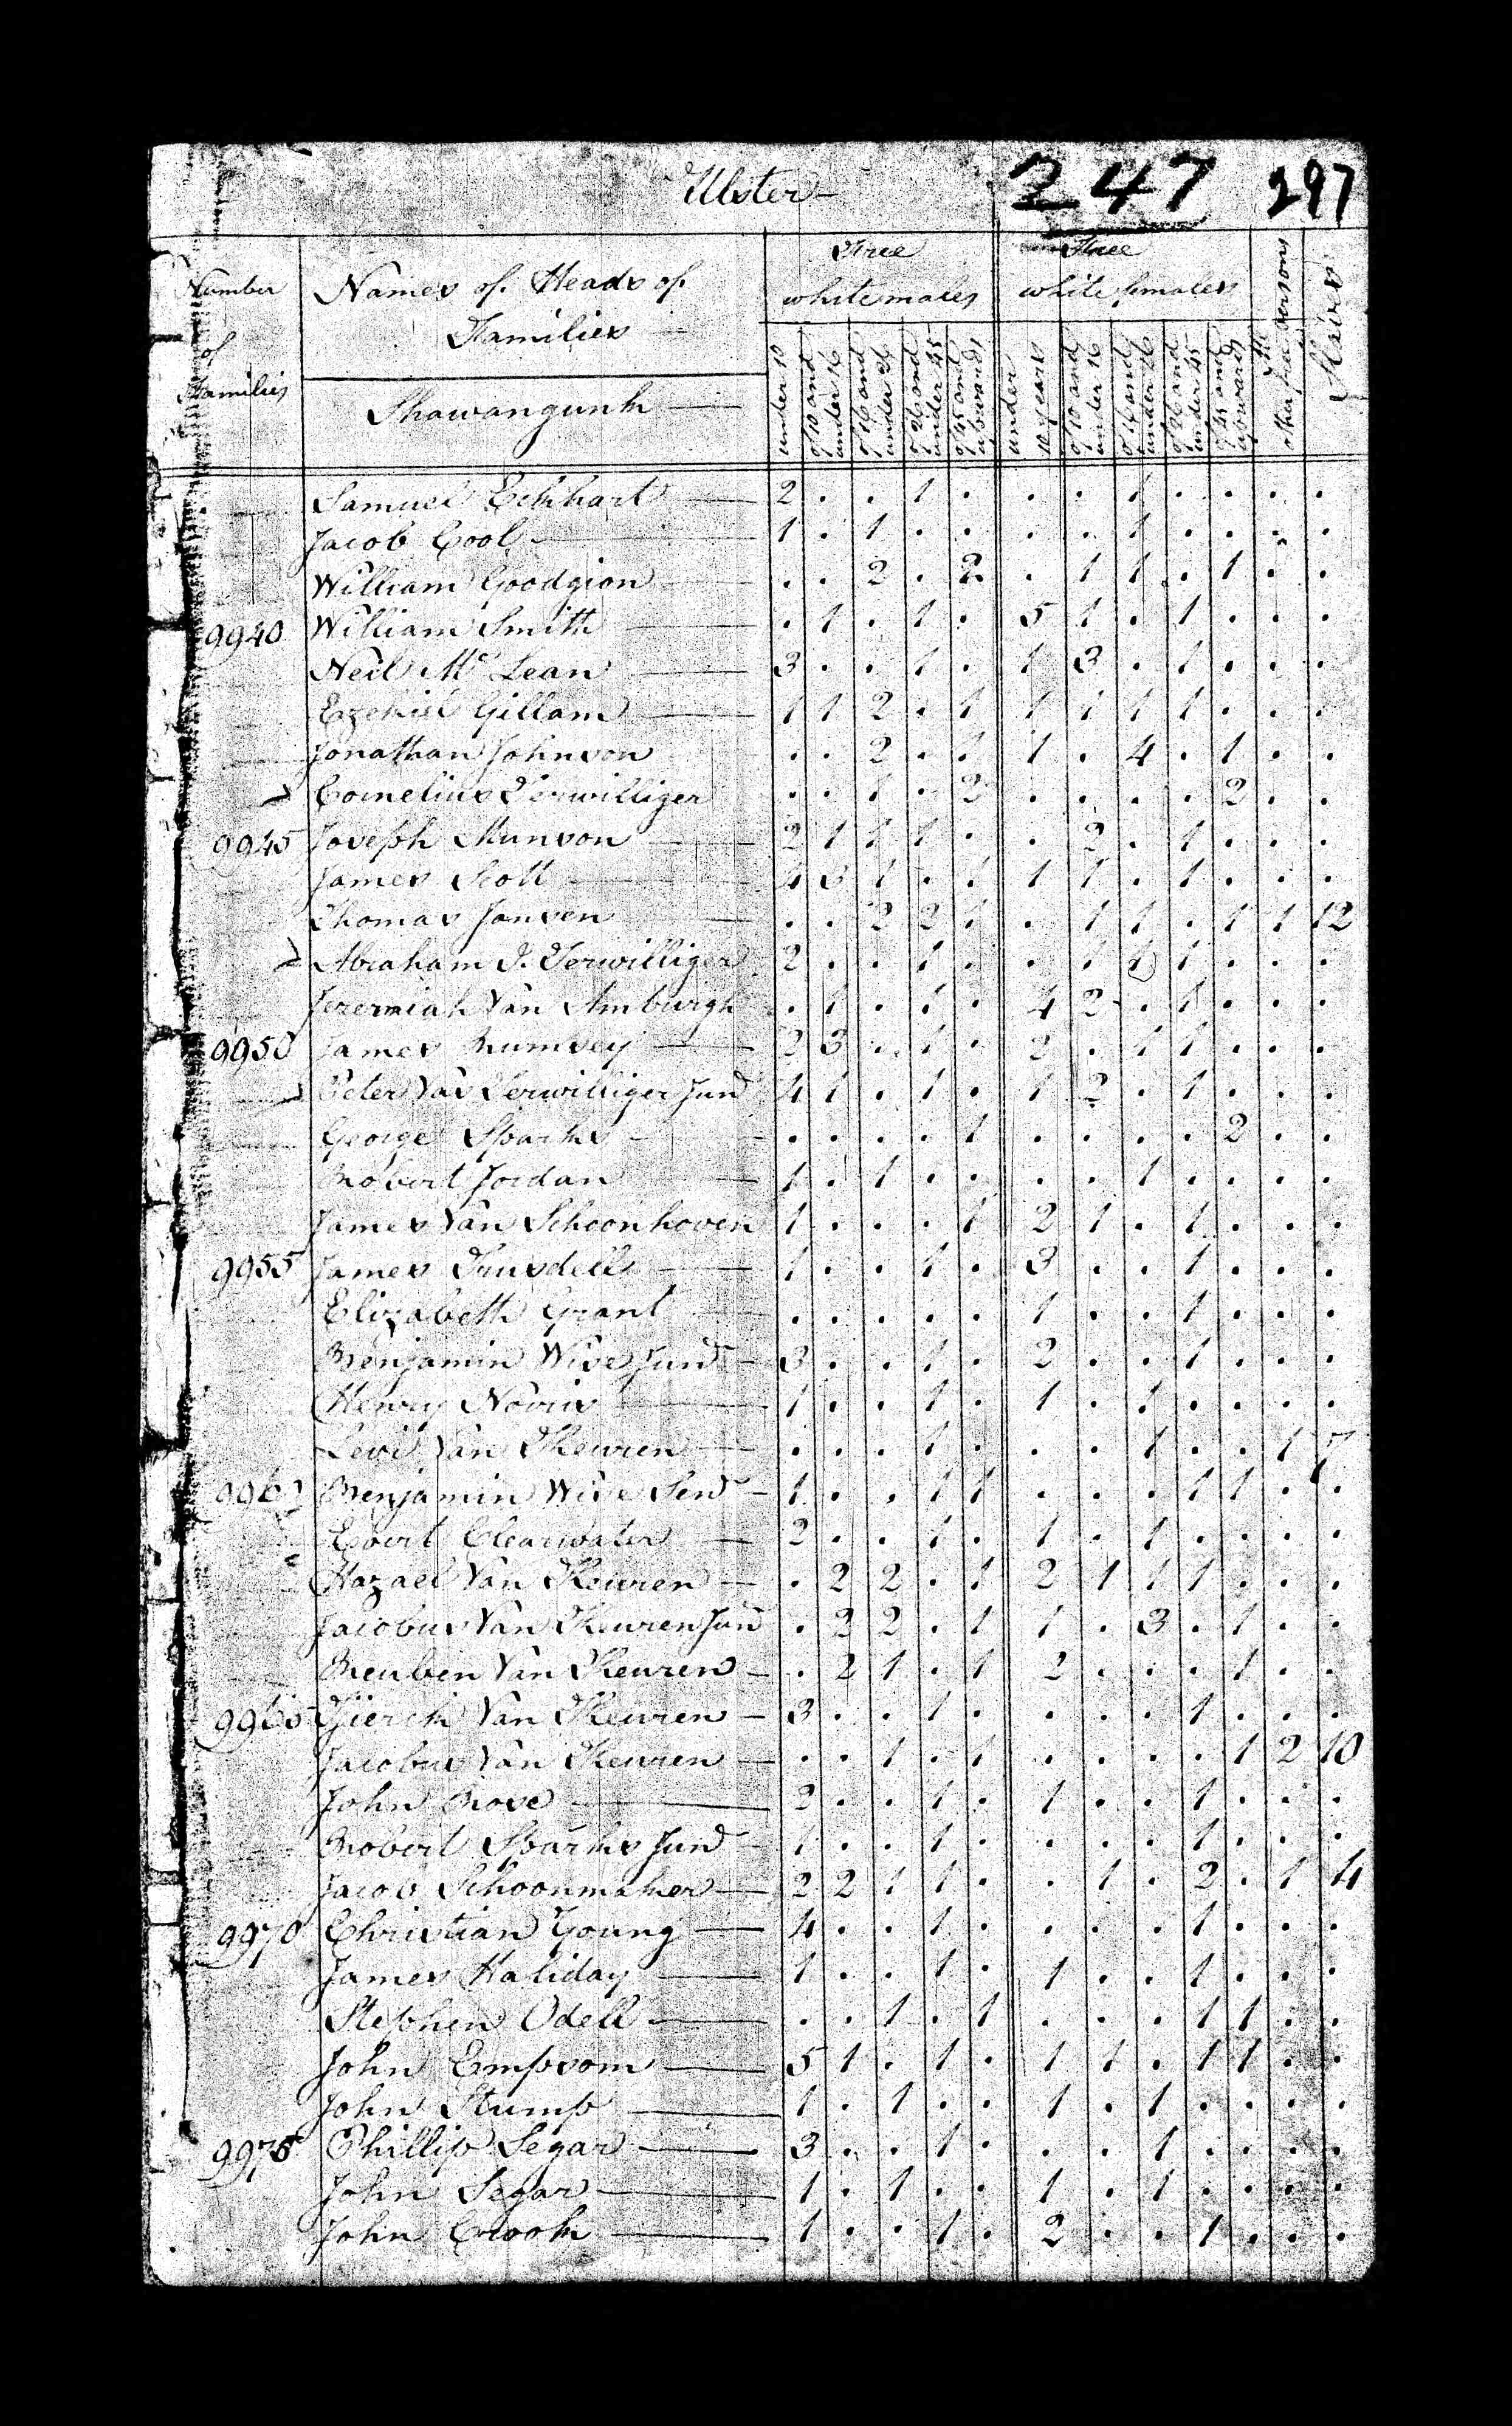 Ulster
247 297
Number of Families
Names of Heads of Families
Free white males
Free white females
Shawangunk
under 10
of 10 and under 16
of 16 and under 26
of 26 and under 45
of 45 and upwards
under 10 years
of 10 and under 16
of 16 and under 26
of 26 and under 45
of 45 and upwards
All other free persons
Slaves
Samuel Eckhart 2 . . 1 . . . 1 . . . .
Jacob Cool 1 . 1 . . . . 1 . . . .
William Goodgion . . 2 . 2 . 1 1 . 1 . .
9940 William Smith . 1 . 1 . 5 1 . 1 . . .
Neil Mc Lean 3 . . 1 . 1 3 . 1 . . .
Ezekiel Gillam 1 1 2 . 1 1 1 1 1 . . .
Jonathan Johnson . . 2 . 1 1 . 4 . 1 . .
Cornelius Terwilliger . . 1 . 2 . . . . 2 . .
9945 Joseph Munson 2 1 1 1 . . 2 . 1 . . .
James Scott 4 3 1 . 1 1 1 . 1 . . .
Thomas Jansen . . 2 2 1 . 1 1 . 1 1 12
Abraham J. Terwilliger 2 . . 1 . . 1 1 1 . . .
Jeremiah Van Amburgh . 1 . 1 . 4 2 . 1 . . .
9950 James Rumsey 2 3 . 1 . 2 . 1 1 . . .
Peter Terwilliger Jund 4 1 . 1 . 1 2 . 1 . . .
George Sparks . . . . 1 . . . . 2 . .
Robert Jordan 1 . 1 . . . . 1 . . . .
James Van Schoonhoven 1 . . . 1 2 1 . 1 . . .
9955 James Trusdell 1 . . 1 . 3 . . 1 . . .
Elizabeth Grant . . . . . 1 . . 1 . . .
Benjamin Wise Jund 3 . . 1 . 2 . . 1 . . .
Henry Noris 1 . . 1 . 1 . 1 . . . .
Levi Van Keuren . . . 1 . . . 1 . . 1 7
9960 Benjamin Wise Send 1 . . 1 1 . . . 1 1 . .
Evert Clearwater 2 . . 1 . 1 . 1 . . . .
Hazael Van Keuren . 2 2 . 1 2 1 1 1 . . .
Jacobus Van Keuren Jun . 2 2 . 1 1 . 3 . 1 . .
Reuben Van Keuren . 2 1 . 1 2 . . . 1 . .
9965 Tjierck Van Keuren 3 . . 1 . . . . 1 . . .
Jacobus Van Keuren . . 1 . 1 . . . . 1 2 10
John Rose 2 . . 1 . 1 . . 1 . . .
Robert Sparks Jund 1 . . 1 . . . . 1 . . .
Jacob Schoonmaker 2 2 1 1 . . 1 . 2 . 1 4
9970 Christian Young 4 . . 1 . . . . 1 . . .
James Haliday 1 . . 1 . 1 . . 1 . . .
Stephen Odell . . 1 . 1 . . . 1 1 . .
John Empsom 5 1 . 1 . 1 1 . 1 1 . .
John Stump 1 . 1 . . 1 . 1 . . . .
9975 Phillip Segar 3 . . 1 . . . 1 . . . .
John Segar 1 . 1 . . 1 . 1 . . . .
John Crook 1 . . 1 . 2 . . 1 . . .